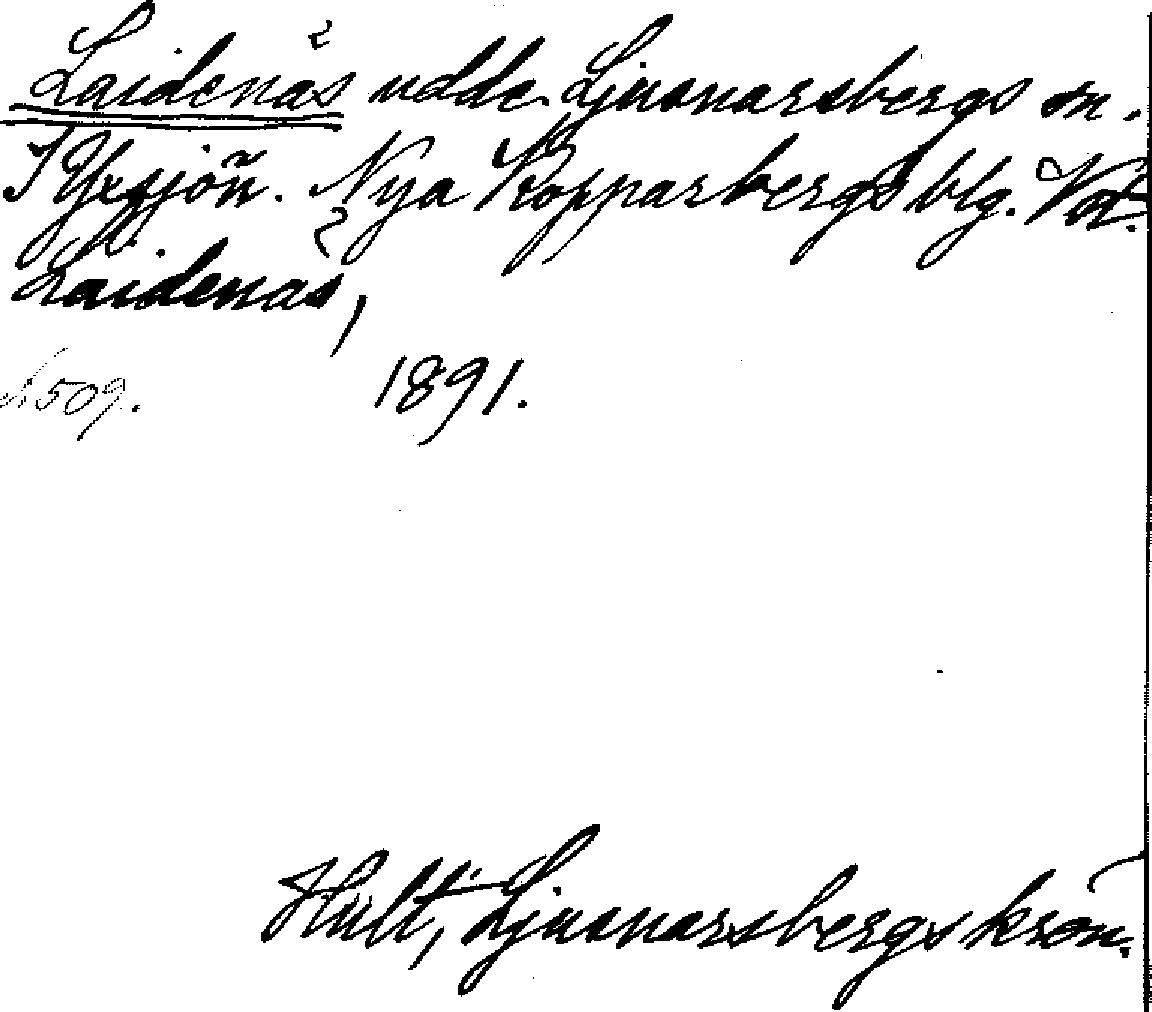 Laidenås udde Ljusnarsbergs sn.
I Yxsjön. Nya Kopparbergs blg. Vtl.
Laidenås,
N 509. 1891.
Hult, Ljusnarsbergskrön.